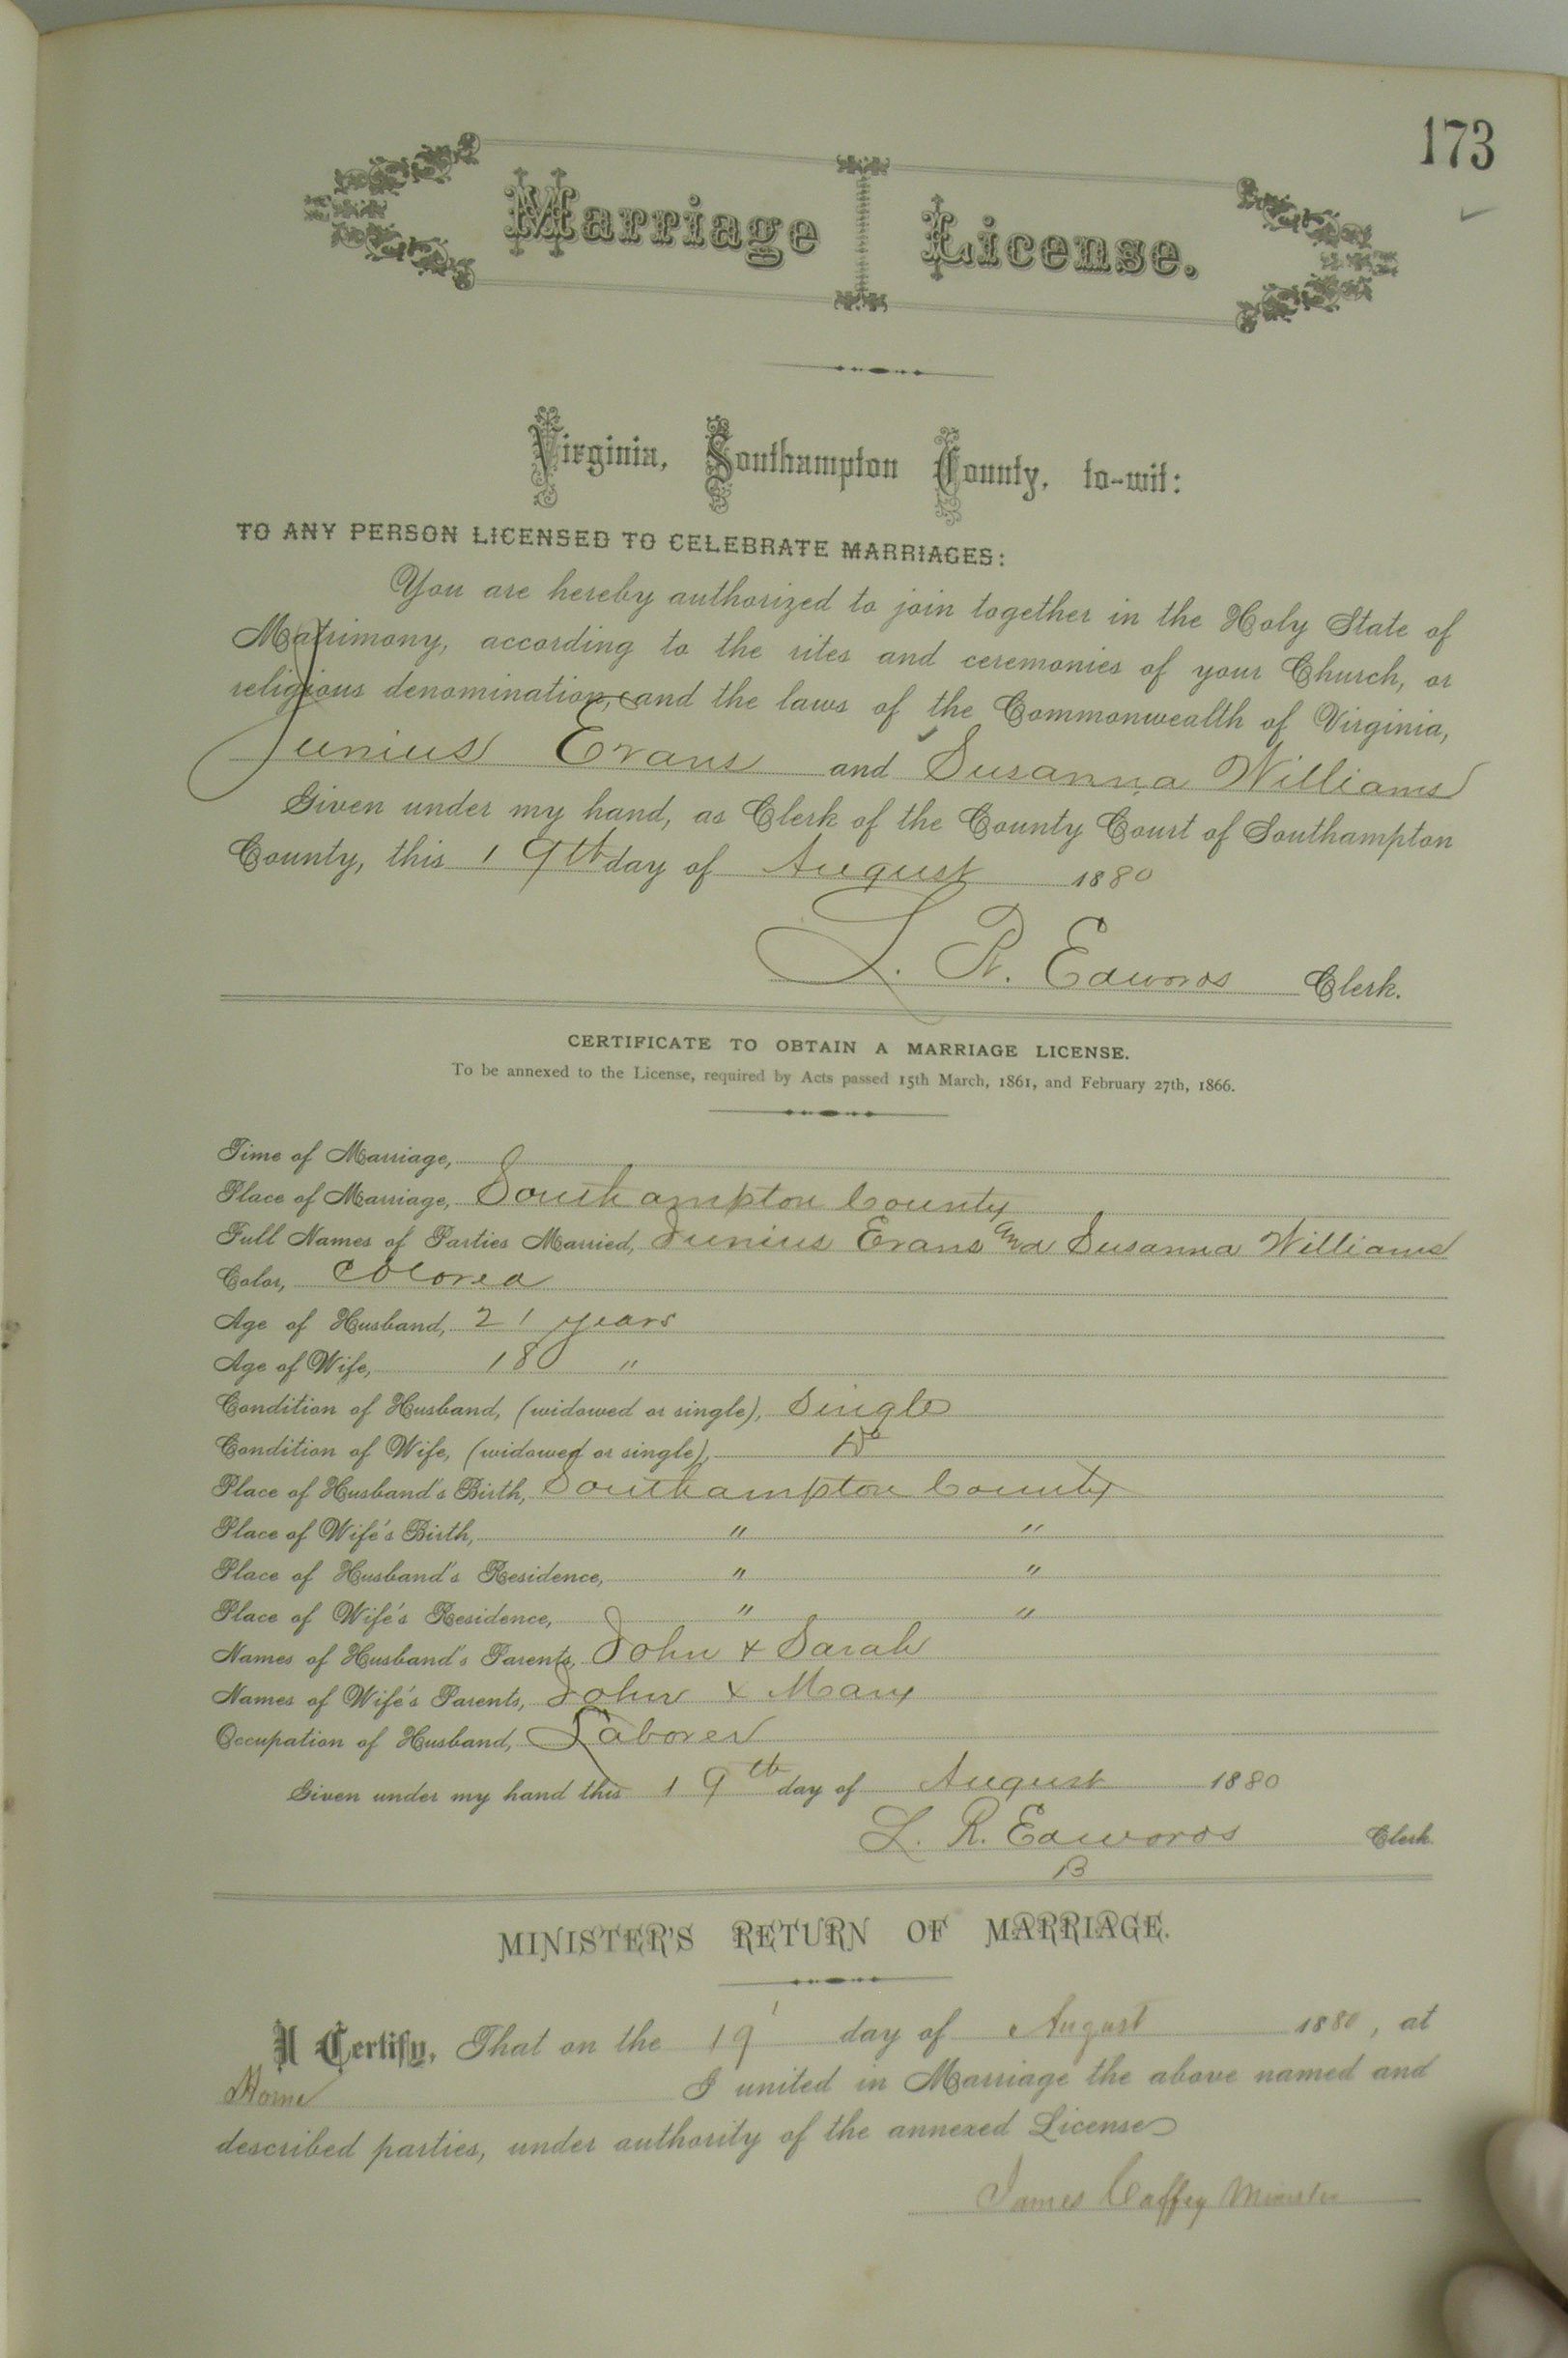 173
Marriage License.
Virginia, Southampton County, to-wit:
TO ANY PERSON LICENSED TO CELEBRATE MARRIAGES:
You are hereby authorized to join together in the Holy State of
Matrimony, according to the rites and ceremonies of your Church, or
religious denomination, and the laws of the Commonwealth of Virginia,
Junius Evans and Susanna Williams
Given under my hand, as Clerk of the County Court of Southampton
County, this 19th day of August 1880
L. R. Edwards Clerk.
CERTIFICATE TO OBTAIN A MARRIAGE LICENSE.
To be annexed to the License, required by Acts passed 15th March, 1861, and February 27th, 1866.
Time of Marriage,
Place of Marriage, Southampton County
Full Names of Parties Married, Junius Evans and Susanna Williams
Color, Colored
Age of Husband, 21 years
Age of Wife, 18 "
Condition of Husband, (widowed or single), Single
Condition of Wife, (widowed or single), Do
Place of Husband's Birth, Southampton County
Place of Wife's Birth, " "
Place of Husband's Residence, " "
Place of Wife's Residence, " "
Names of Husband's Parents, John & Sarah
Names of Wife's Parents, John & Mary
Occupation of Husband, Laborer
Given under my hand this 19th day of August 1880
L. R. Edwards Clerk.
B
MINISTER'S RETURN OF MARRIAGE.
I Certify, That on the 19 day of August 1880, at
Home I united in Marriage the above named and
described parties, under authority of the annexed License
James Caffey Minister